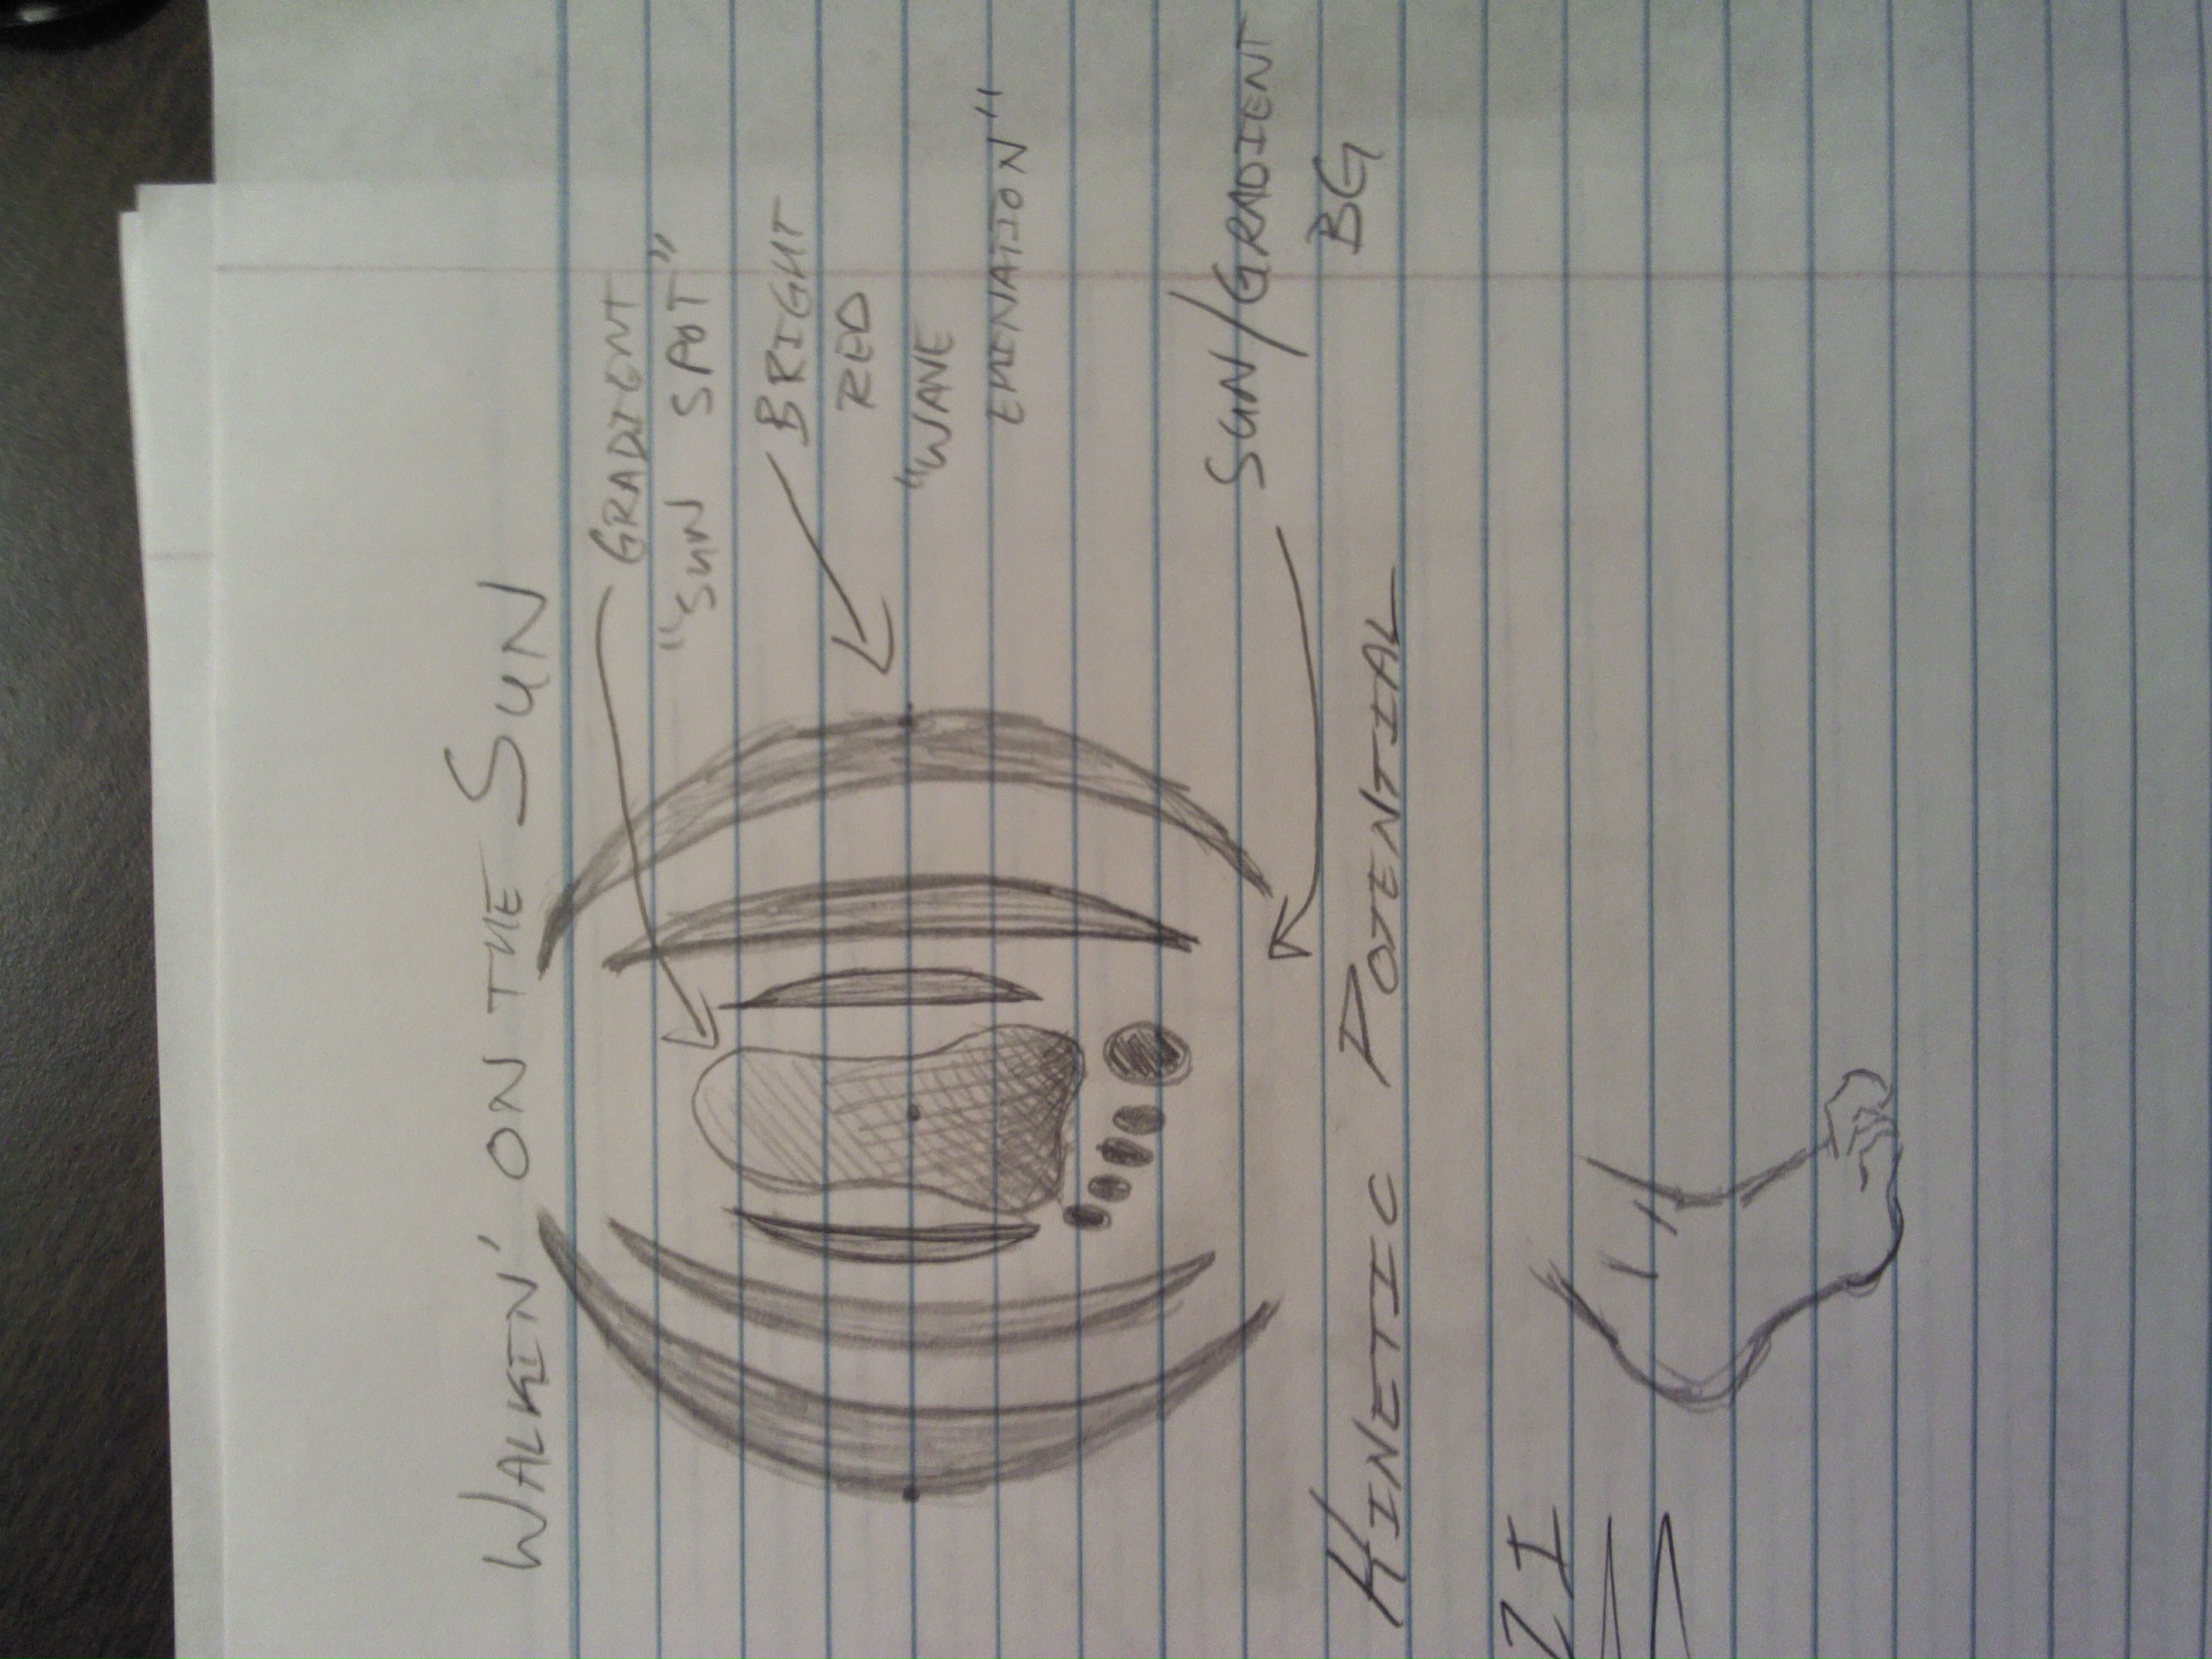 WALKIN' ON THE SUN
GRADIENT
"SUN SPOT"
BRIGHT
RED
"WAVE
EMINATION"
SUN/GRADIENT
BG
KINETIC POTENTIAL
ZI